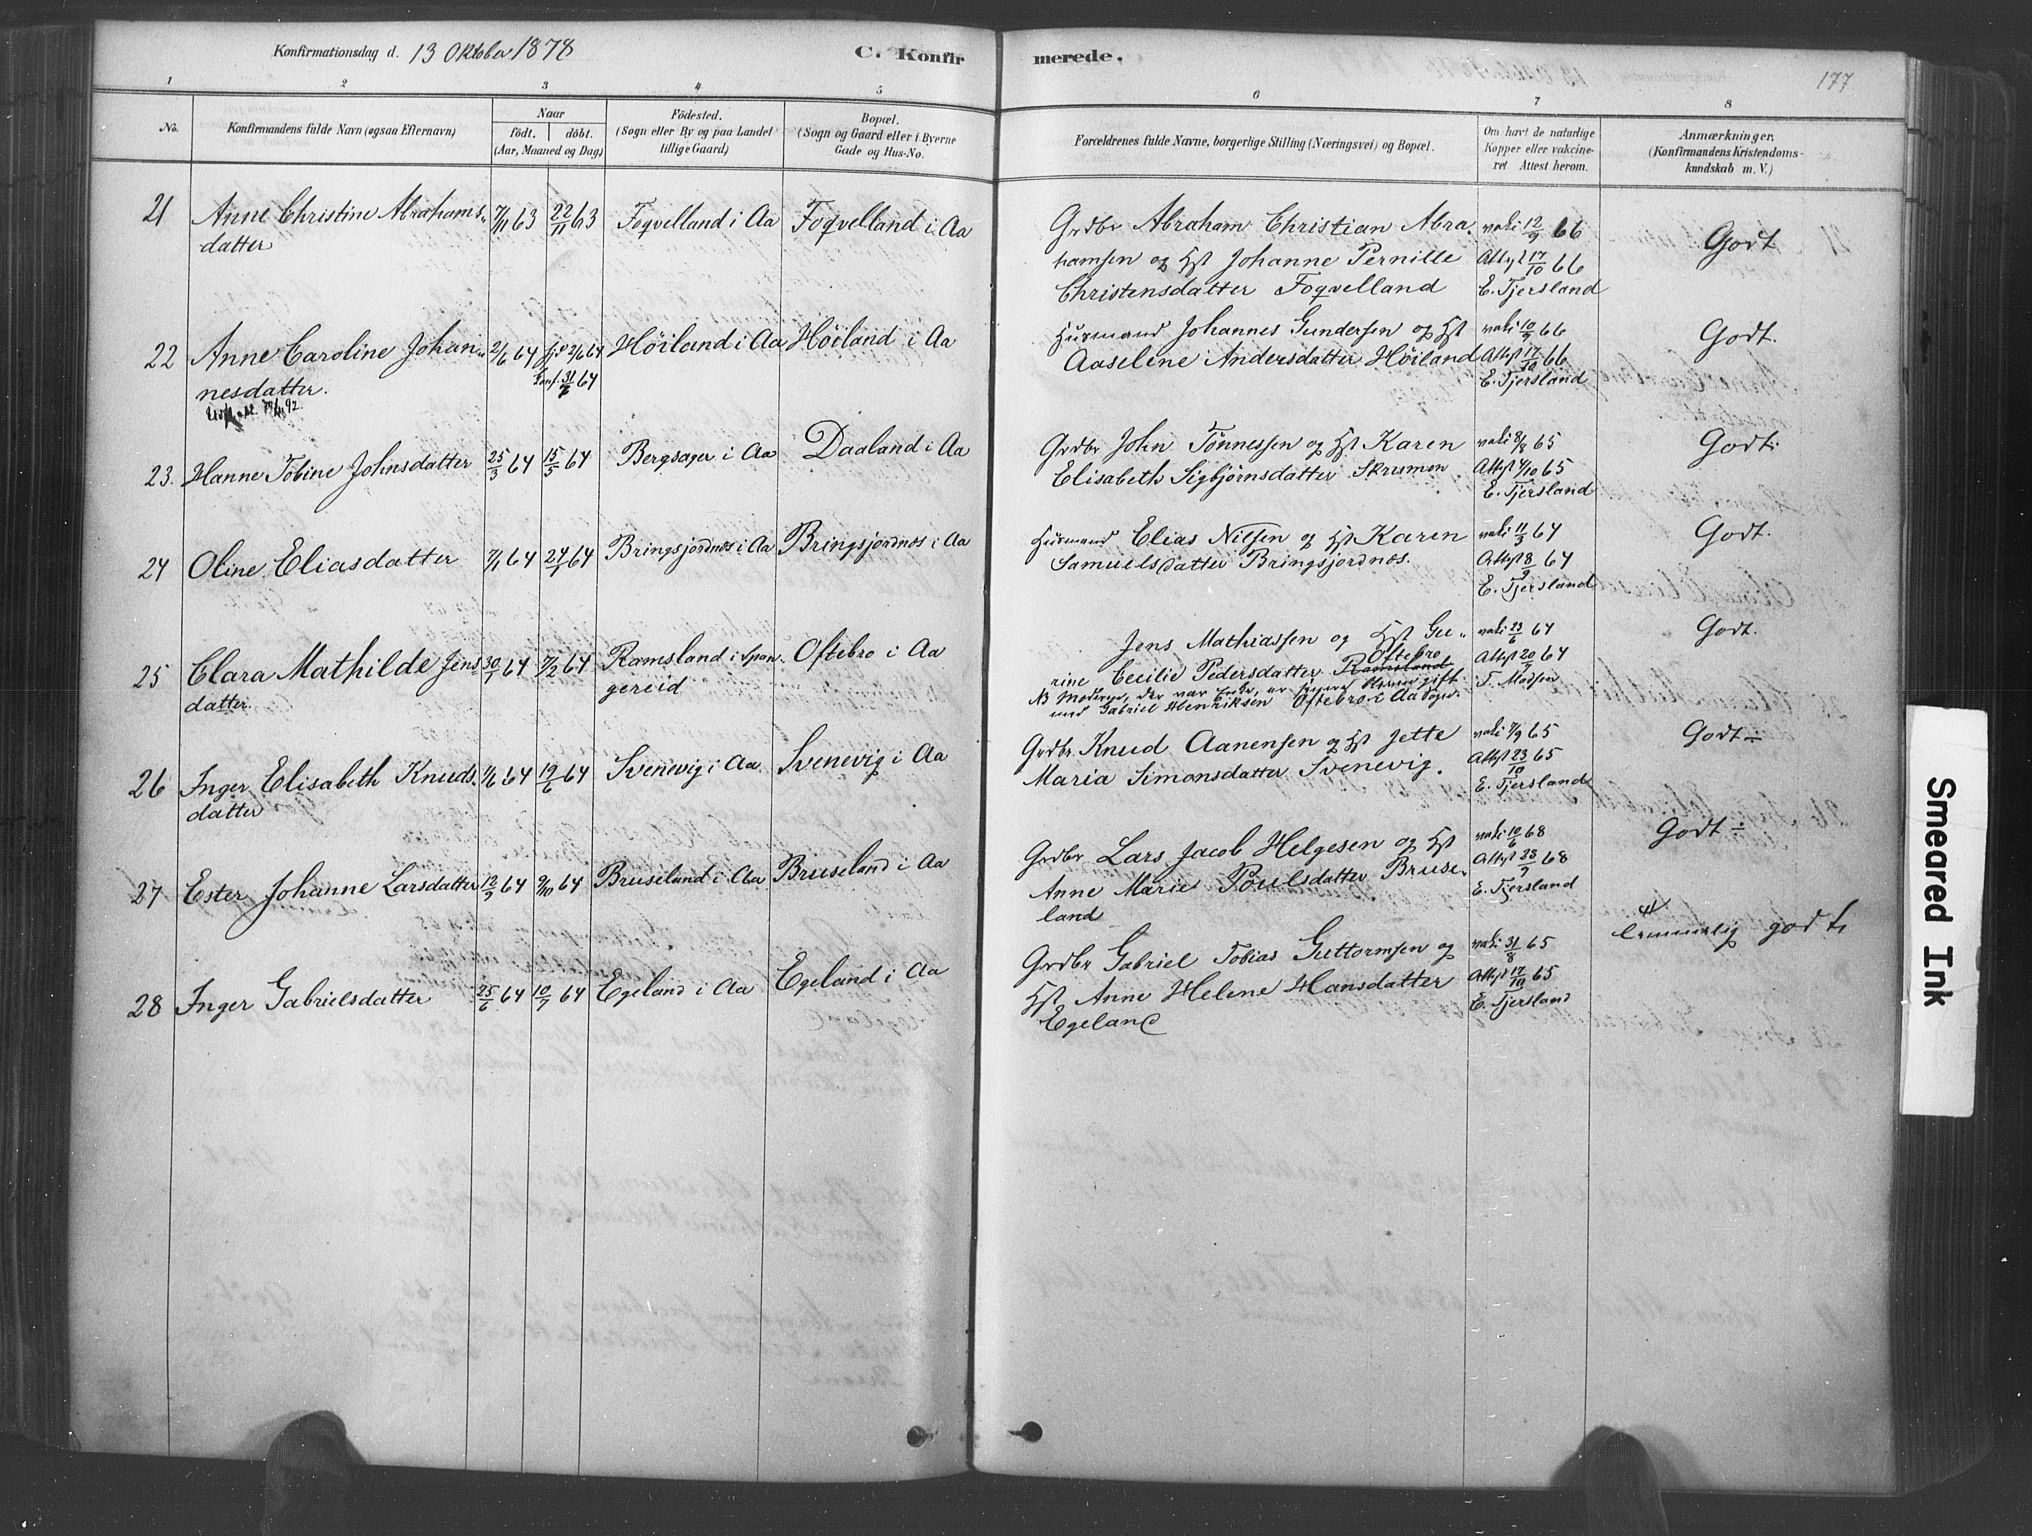 Konfirmationsdag d. 13 Oktober 1878
C. Konfirmerede.
177
1 2 3 4 5 6 7 8
No.
Konfirmandens fulde Navn (ogsaa Efternavn)
Naar
födt. döbt.
(Aar, Maaned og Dag)
Födested.
(Sogn eller By og paa Landet
tillige Gaard)
Bopæl.
(Sogn og Gaard eller i Byerne
Gade og Hus-No.
Forældrenes fulde Navne, borgerlige Stilling (Næringsvei) og Bopæl.
Om havt de naturlige
Kopper eller vakcine-
ret Attest herom.
Anmærkninger.
(Konfirmandens Kristendoms-
kundskab m. V.)
21 Anne Christine Abrahams- 7/11 63 22/11 63 Foqvelland i Aa Foqvelland i Aa
datter
Grdbr Abraham Christian Abra-
hamsen og Hst Johanne Pernille
Christensdatter Foqvelland
vaki 12/9 66
Attest 17/10 66
E. Tjersland
Godt
22 Anne Caroline Johan- 2/6 64 hjd 2/6 64 Höiland i Aa Höiland i Aa
nesdatter. 31/7 64
Husmand Johannes Gundersen og Hst
Aaselene Andersdatter Höiland
vaki 10/9 66
Attest 17/10 66
E. Tjersland
Godt.
23. Hanne Tobine Johnsdatter 25/3 64 15/5 64 Bergsager i Aa Daaland i Aa
Grdbr John Tönnessen og Hst Karen
Elisabeth Sigbjörnsdatter Skrumon
vaki 8/8 65
Attest 4/10 65
E. Tjersland
Godt.
24 Oline Eliasdatter 7/1 64 24/1 64 Bringsjordnæs i Aa Bringsjordnæs i Aa
Husmand Elias Nilsen og Hst Karen
Samuelsdatter Bringsjordnæs.
vaki 11/3 64
Attest 8/9 64
E. Tjersland
Godt.
25 Clara Mathilde Jens- 30/1 64 7/2 64 Ramsland i Span- Oftebro i Aa
datter. gereid
Jens Mathiassen og Hst Gu-
rine Cecilie Pedersdatter Ramsland Oftebro
NB Moderen, der var Enke, er gift
med Gabriel Henriksen Oftebro i Aa Sogn.
vaki 23/6 64
Attest 20/9 64
T. Madsen
Godt.
26 Inger Elisabeth Knuds- 1/6 64 19/6 64 Svenevig i Aa Svenevig i Aa
datter
Grdbr. Knud Aanensen og Hst Jette
Maria Simonsdatter Svenevig.
vaki 7/9 65
Attest 23/10 65
E. Tjersland
Godt -
27 Ester Johanne Larsdatter 12/9 64 9/10 64 Bruseland i Aa Bruseland i Aa
Grdbr Lars Jacob Helgesen og Hst
Anne Marie Poulsdatter Bruse-
land
vaki 10/6 68
Attest 28/9 68
E. Tjersland
Godt -
28 Inger Gabrielsdatter 25/6 64 10/7 64 Egeland i Aa Egeland i Aa
Grdbr Gabriel Tobias Guttormsen og
Hst Anne Helene Hansdatter
Egeland
vaki 31/8 65
Attest 17/10 65
E. Tjersland
temmelig godt
Smeared Ink